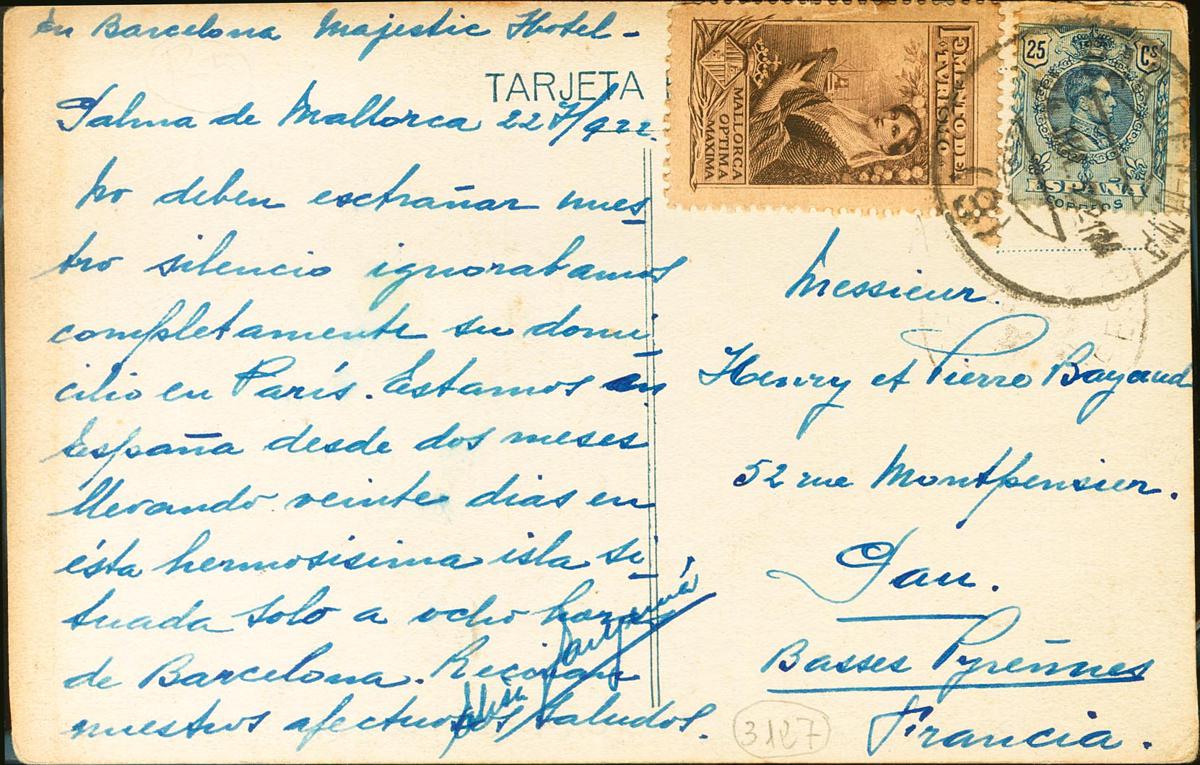 En Barcelona Majestic Hotel -
TARJETA
Palma de Mallorca 22 7/922.
No deben extrañar nues
tro silencio ignorabamos
completamente su domi
cilio en París. Estamos en
España desde dos meses
llevando veinte dias en
ésta hermosisima isla si
tuada solo a ocho horas
de Barcelona. Reciban
nuestros afectuosos saludos.
FOMENTO DE
TVRISMO
MALLORCA
OPTIMA
MAXIMA
25 Cs
ESPAÑA
CORREOS
Messieur.
Henry et Pierre Bayaud
52 rue Montpensier.
Pau.
Basses Pyrennes
Francia.
3127